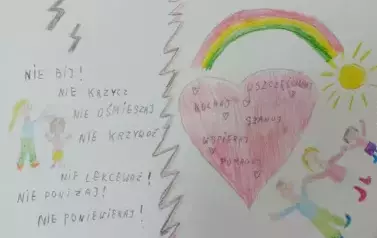 NIE BIJ!
NIE KRZYCZ
NIE OŚMIESZAJ
NIE KRZYWDŹ
NIE LEKCEWAŻ!
NIE PONIŻAJ!
NIE PONIEWIERAJ!
USZCZĘŚLIWIAJ
KOCHAJ
SZANUJ
WSPIERAJ
POMAGAJ